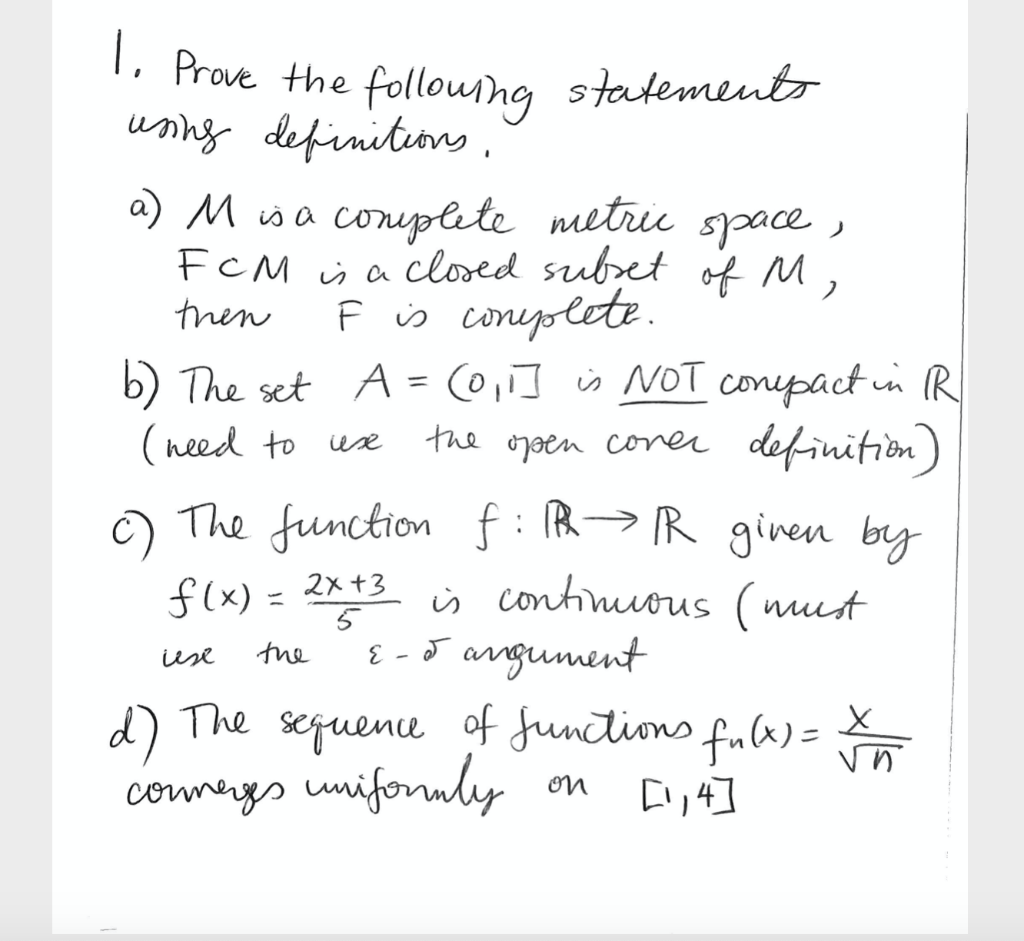 1. Prove the following statements
using definitions.
a) M is a complete metric space,
F⊂M is a closed subset of M,
then F is complete.
b) The set A = (0,1] is NOT compact in ℝ
(need to use the open cover definition)
c) The function f : ℝ→ℝ given by
f(x) = 2x+3/5 is continuous (must
use the ε-δ argument
d) The sequence of functions fn(x) = x/√n
converges uniformly on [1,4]